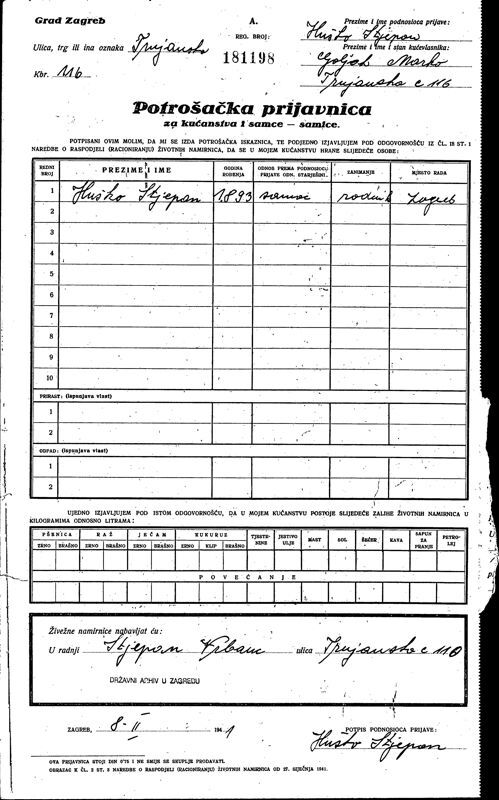 Grad Zagreb
A.
Prezime i ime podnosioca prijave:
Huško Stjepan
Ulica, trg ili ina oznaka Trnjanska
REG. BROJ:
181198
Prezime i ime i stan kućevlasnika:
Goljak Marko
Kbr. 116
Trnjanska c 116
Potrošačka prijavnica
za kućanstva i samce — samice.
POTPISANI OVIM MOLIM, DA MI SE IZDA POTROŠAČKA ISKAZNICA, TE PODJEDNO IZJAVLJUJEM POD ODGOVORNOŠĆU IZ ČL. 18 ST. 1
NAREDBE O RASPODJELI (RACIONIRANJU) ŽIVOTNIH NAMIRNICA, DA SE U MOJEM KUĆANSTVU HRANE SLIJEDEĆE OSOBE:
REDNI BROJ PREZIME I IME GODINA ROĐENJA ODNOS PREMA PODNOSIOCU PRIJAVE ODN. STARJEŠINI ZANIMANJE MJESTO RADA
1 Huško Stjepan 1893 samac radnik Zagreb
2
3
4
5
6
7
8
9
10
PRIRAST: (ispunjava vlast)
1
2
ODPAD: (ispunjava vlast)
1
2
UJEDNO IZJAVLJUJEM POD ISTOM ODGOVORNOŠĆU, DA U MOJEM KUĆANSTVU POSTOJE SLIJEDEĆE ZALIHE ŽIVOTNIH NAMIRNICA U
KILOGRAMIMA ODNOSNO LITRAMA:
PŠENICA RAŽ JEČAM KUKURUZ TJESTENINE JESTIVO ULJE MAST SOL ŠEĆER KAVA SAPUN ZA PRANJE PETROLEJ
ZRNO BRAŠNO ZRNO BRAŠNO ZRNO BRAŠNO ZRNO KLIP BRAŠNO
POVEĆANJE
Živežne namirnice nabavljat ću:
U radnji Stjepan Vrbanc ulica Trnjanska c 110
DRŽAVNI ARHIV U ZAGREBU
ZAGREB, 8-II 1941
POTPIS PODNOSIOCA PRIJAVE:
Huško Stjepan
OVA PRIJAVNICA STOJI DIN 0'75 I NE SMIJE SE SKUPLJE PRODAVATI.
OBRAZAC K ČL. 2 ST. 2 NAREDBE O RASPODJELI (RACIONIRANJU) ŽIVOTNIH NAMIRNICA OD 27. SIJEČNJA 1941.